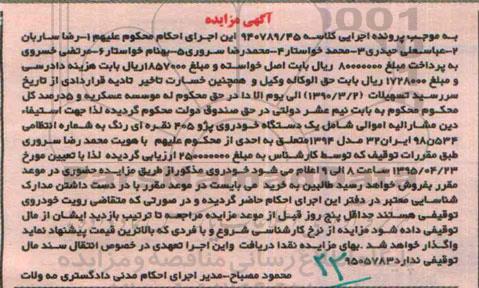 آگهی مزایده
به موجب پرونده اجرایی کلاسه ۹۴۰۷۸۹/۴۵ این اجرای احکام محکوم علیهم ۱-رضا ساربان
۲-عباسعلی حیدری۳-محمد خواستار۴-محمدرضا سروری۵-بهنام خواستار۶-مرتضی خسروی
به پرداخت مبلغ ۸۰۰۰۰۰۰۰ ریال بابت اصل خواسته و مبلغ ۱۸۵۷۰۰۰ریال بابت هزینه دادرسی
و مبلغ ۱۷۲۸۰۰۰ ریال بابت حق الوکاله وکیل و همچنین خسارت تاخیر تادیه قراردادی از تاریخ
سررسید تسهیلات (۱۳۹۰/۳/۲) الی یوم الادا در حق محکوم له موسسه عسکریه و ۵درصد کل
محکوم محکوم به بابت نیم عشر دولتی در حق صندوق دولت محکوم گردیده لذا جهت استیفاء
دین مشارالیه اموالی شامل یک دستگاه خودروی پژو ۴۰۵ نقره ای رنگ به شماره انتظامی
۹۸ق۵۳۴ ایران۳۲ مدل ۱۳۹۴متعلق به احدی از محکوم علیهم با هویت محمد رضا سروری
طبق مقررات توقیف که توسط کارشناس به مبلغ ۲۵۰۰۰۰۰۰۰ ارزیابی گردیده لذا با تعیین مورخ
۱۳۹۵/۰۴/۲۳ ساعت ۱۰الی۸ اعلام می شود خودروی مذکور از طریق مزایده حضوری در موعد
مقرر بفروش خواهد رسید طالبین به خرید می بایست در موعد مقرر با در دست داشتن مدارک
شناسایی معتبر در دفتر این اجرای احکام حاضر گردیده و در صورتی که متقاضی رویت خودروی
توقیفی هستند حداقل پنج روز قبل از موعد مزایده مراجعه تا ترتیب بازدید ایشان از مال
توقیفی داده شود مزایده از نرخ کارشناسی شروع و با فردی که بالاترین قیمت پیشنهاد نماید
واگذار خواهد شد .بهای مزایده نقدا دریافت واین اجرا تعهدی در خصوص انتقال سند مال
توقیفی ندارد۹۵۰۵۷۸۳
محمود مصباح-مدیر اجرای احکام مدنی دادگستری مه ولات
۲۲